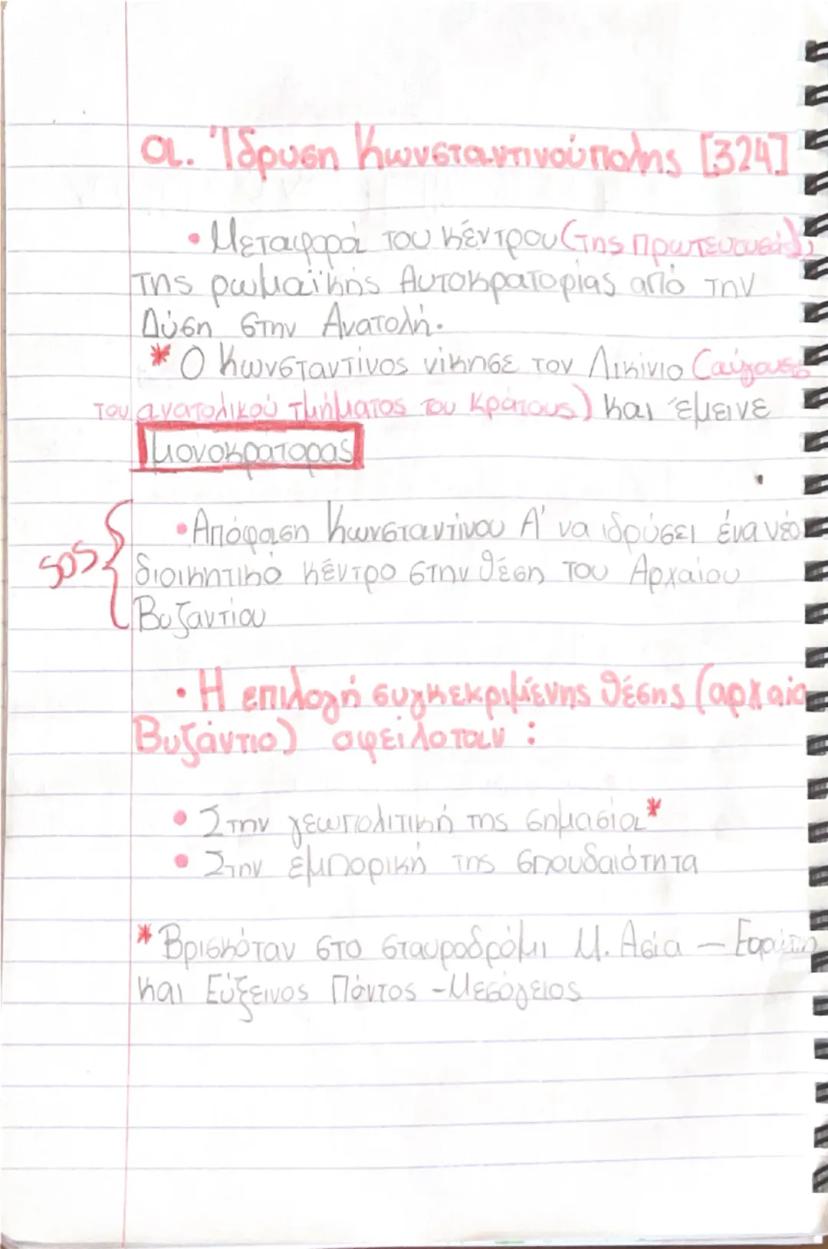 α. Ίδρυση Κωνσταντινούπολης [324]
• Μεταφορά του κέντρου (της πρωτεύουσας)
της ρωμαϊκής Αυτοκρατορίας από την
Δύση στην Ανατολή.
* Ο Κωνσταντίνος νίκησε τον Λικίνιο (αύγουστο
του ανατολικού τμήματος του κράτους) και έμεινε
μονοκράτορας
• Απόφαση Κωνσταντίνου Α' να ιδρύσει ένα νέο
SOS { διοικητικό κέντρο στην θέση του Αρχαίου
Βυζαντίου
• Η επιλογή συγκεκριμένης θέσης (αρχαίο
Βυζάντιο) οφείλοταν :
• Στην γεωπολιτική της σημασία*
• Στην εμπορική της σπουδαιότητα
* Βρισκόταν στο σταυροδρόμι Μ. Ασία – Ευρώπη
και Εύξεινος Πόντος - Μεσόγειος